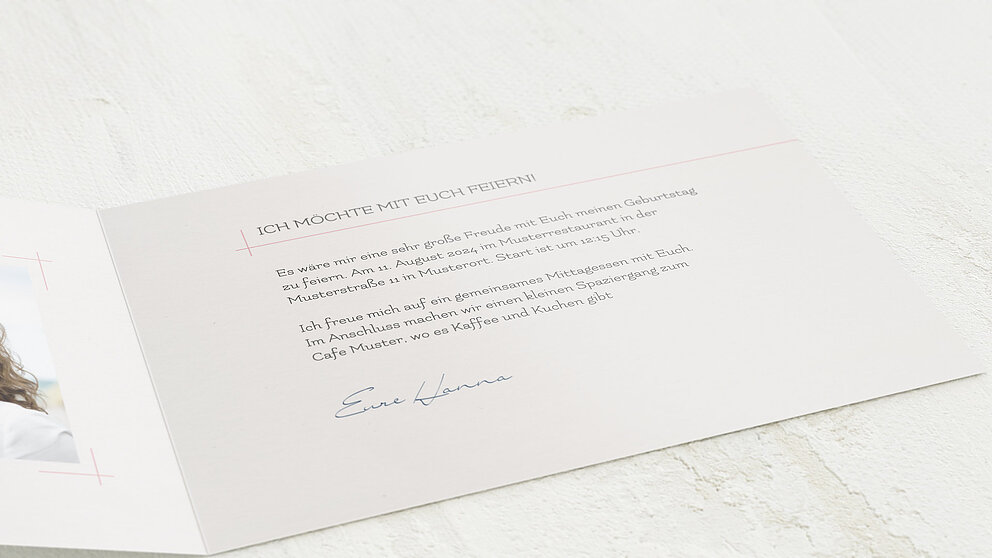 ICH MÖCHTE MIT EUCH FEIERN!
Es wäre mir eine sehr große Freude mit Euch meinen Geburtstag
zu feiern. Am 11. August 2024 im Musterrestaurant in der
Musterstraße 11 in Musterort. Start ist um 12:15 Uhr.
Ich freue mich auf ein gemeinsames Mittagessen mit Euch.
Im Anschluss machen wir einen kleinen Spaziergang zum
Cafe Muster, wo es Kaffee und Kuchen gibt
Eure Hanna